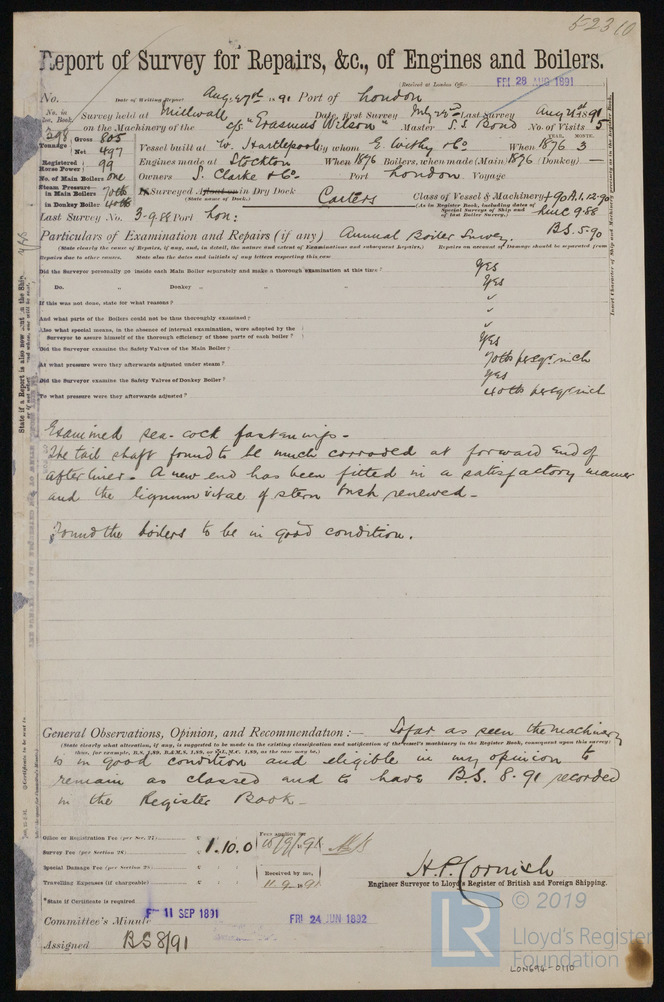 52310
Report of Survey for Repairs, &c., of Engines and Boilers.
(Received at London Office FRI 28 AUG 1891
No. Date of Writing Report Aug: 27th 1891 Port of London
No. in Reg. Book. Survey held at Millwall Date, first Survey July 22nd Last Survey Aug 21st 1891
298 on the Machinery of the "Erasmus Wilson" Master S. S. Bond No. of Visits 5
Tonnage Gross 805 Net 497
Vessel built at W. Hartlepool By whom E. Withy & Co When 1876 3
YEAR. MONTH.
Registered Horse Power 99
Engines made at Stockton When 1876 Boilers, when made (Main) 1876 (Donkey) —
No. of Main Boilers one
Owners S. Clarke & Co. Port London Voyage
Steam Pressure— in Main Boilers 70 lbs in Donkey Boiler 40 lbs
If Surveyed Afloat or in Dry Dock Carters
(State name of Dock.)
Class of Vessel & Machinery +90 A.1. 12.90
(As in Register Book, including dates of Special Surveys of Ship and of last Boiler Survey.)
LMC 9.88
B.S. 5.90
Last Survey No. 3-9.88 Port Lon:
Particulars of Examination and Repairs (if any) Annual Boiler Survey.
(State clearly the cause of Repairs, if any, and, in detail, the nature and extent of Examinations and subsequent Repairs.) Repairs on account of Damage should be separated from
Repairs due to other causes. State also the dates and initials of any letters respecting this case
Did the Surveyor personally go inside each Main Boiler separately and make a thorough examination at this time? Yes
Do. " Donkey " " Yes
If this was not done, state for what reasons?
And what parts of the Boilers could not be thus thoroughly examined?
Also what special means, in the absence of internal examination, were adopted by the
Surveyor to assure himself of the thorough efficiency of those parts of each boiler?
Did the Surveyor examine the Safety Valves of the Main Boiler? Yes
At what pressure were they afterwards adjusted under steam? 70 lbs per sqr inch
Did the Surveyor examine the Safety Valves of Donkey Boiler? Yes
To what pressure were they afterwards adjusted? 40 lbs per sqr inch
Examined sea-cock fastenings—
The tail shaft found to be much corroded at forward end of
after liner. A new end has been fitted in a satisfactory manner
and the lignum vitae of stern bush renewed—
Found the boilers to be in good condition.
General Observations, Opinion, and Recommendation:— So far as seen the machinery
(State clearly what alteration, if any, is suggested to be made in the existing classification and notification of the vessel's machinery in the Register Book, consequent upon this survey:
is in good condition and eligible in my opinion to
remain as classed and to have B.S. 8.91 recorded
in the Register Book—
Office or Registration Fee (per Sec. 27)
Survey Fee (per Section 28) £ 1.10.0
Fees applied for 10/9/91
Special Damage Fee (per Section 28)
Travelling Expenses (if chargeable)
Received by me, 11.9.1891
H.P. Cornish
Engineer Surveyor to Lloyd's Register of British and Foreign Shipping.
*State if Certificate is required
Committee's Minute FRI 11 SEP 1891 FRI 24 JUN 1892
Assigned BS 8/91
© 2019
Lloyd's Register
Foundation
LR
LON694-0110